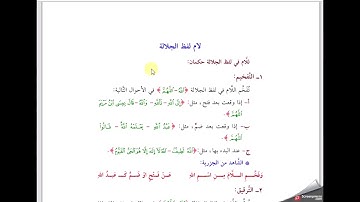 لام لفظ الجلالة
للَّام في لفظ الجلالة حكمان:
١ــ التَّفخيم:
تُفخَّم اللَّام في لفظ الجلالة ﴿ٱللَّه - ٱللَّهُمَّ﴾ في الأحوال التَّالية:
أ- إذا وقعت بعد فتح، مثل: ﴿ قَالَ عِيسَى ٱبْنُ مَرْيَمَ
ٱللَّهُمَّ ﴾.
ب- إذا وقعت بعد ضمٍّ، مثل: ﴿ عَبْدُ ٱللَّهِ - يَعْلَمُهُ ٱللَّهُ - قَالُوا۟
ٱللَّهُمَّ ﴾.
جـ- عند البدء بها، مثل: ﴿ ٱللَّهُ لَطِيفٌ - ٱللَّهُ لَآ إِلَٰهَ إِلَّا هُوَ ٱلْحَىُّ ٱلْقَيُّومُ ﴾
الشَّاهد من الجزرية:
وَفَخِّمِ اللَّامَ مِنِ اسْمِ اللهِ عَنْ فَتْحٍ اوْ ضَمٍّ كَـ عَبْدُ اللهِ
٢ــ التَّرقيق: